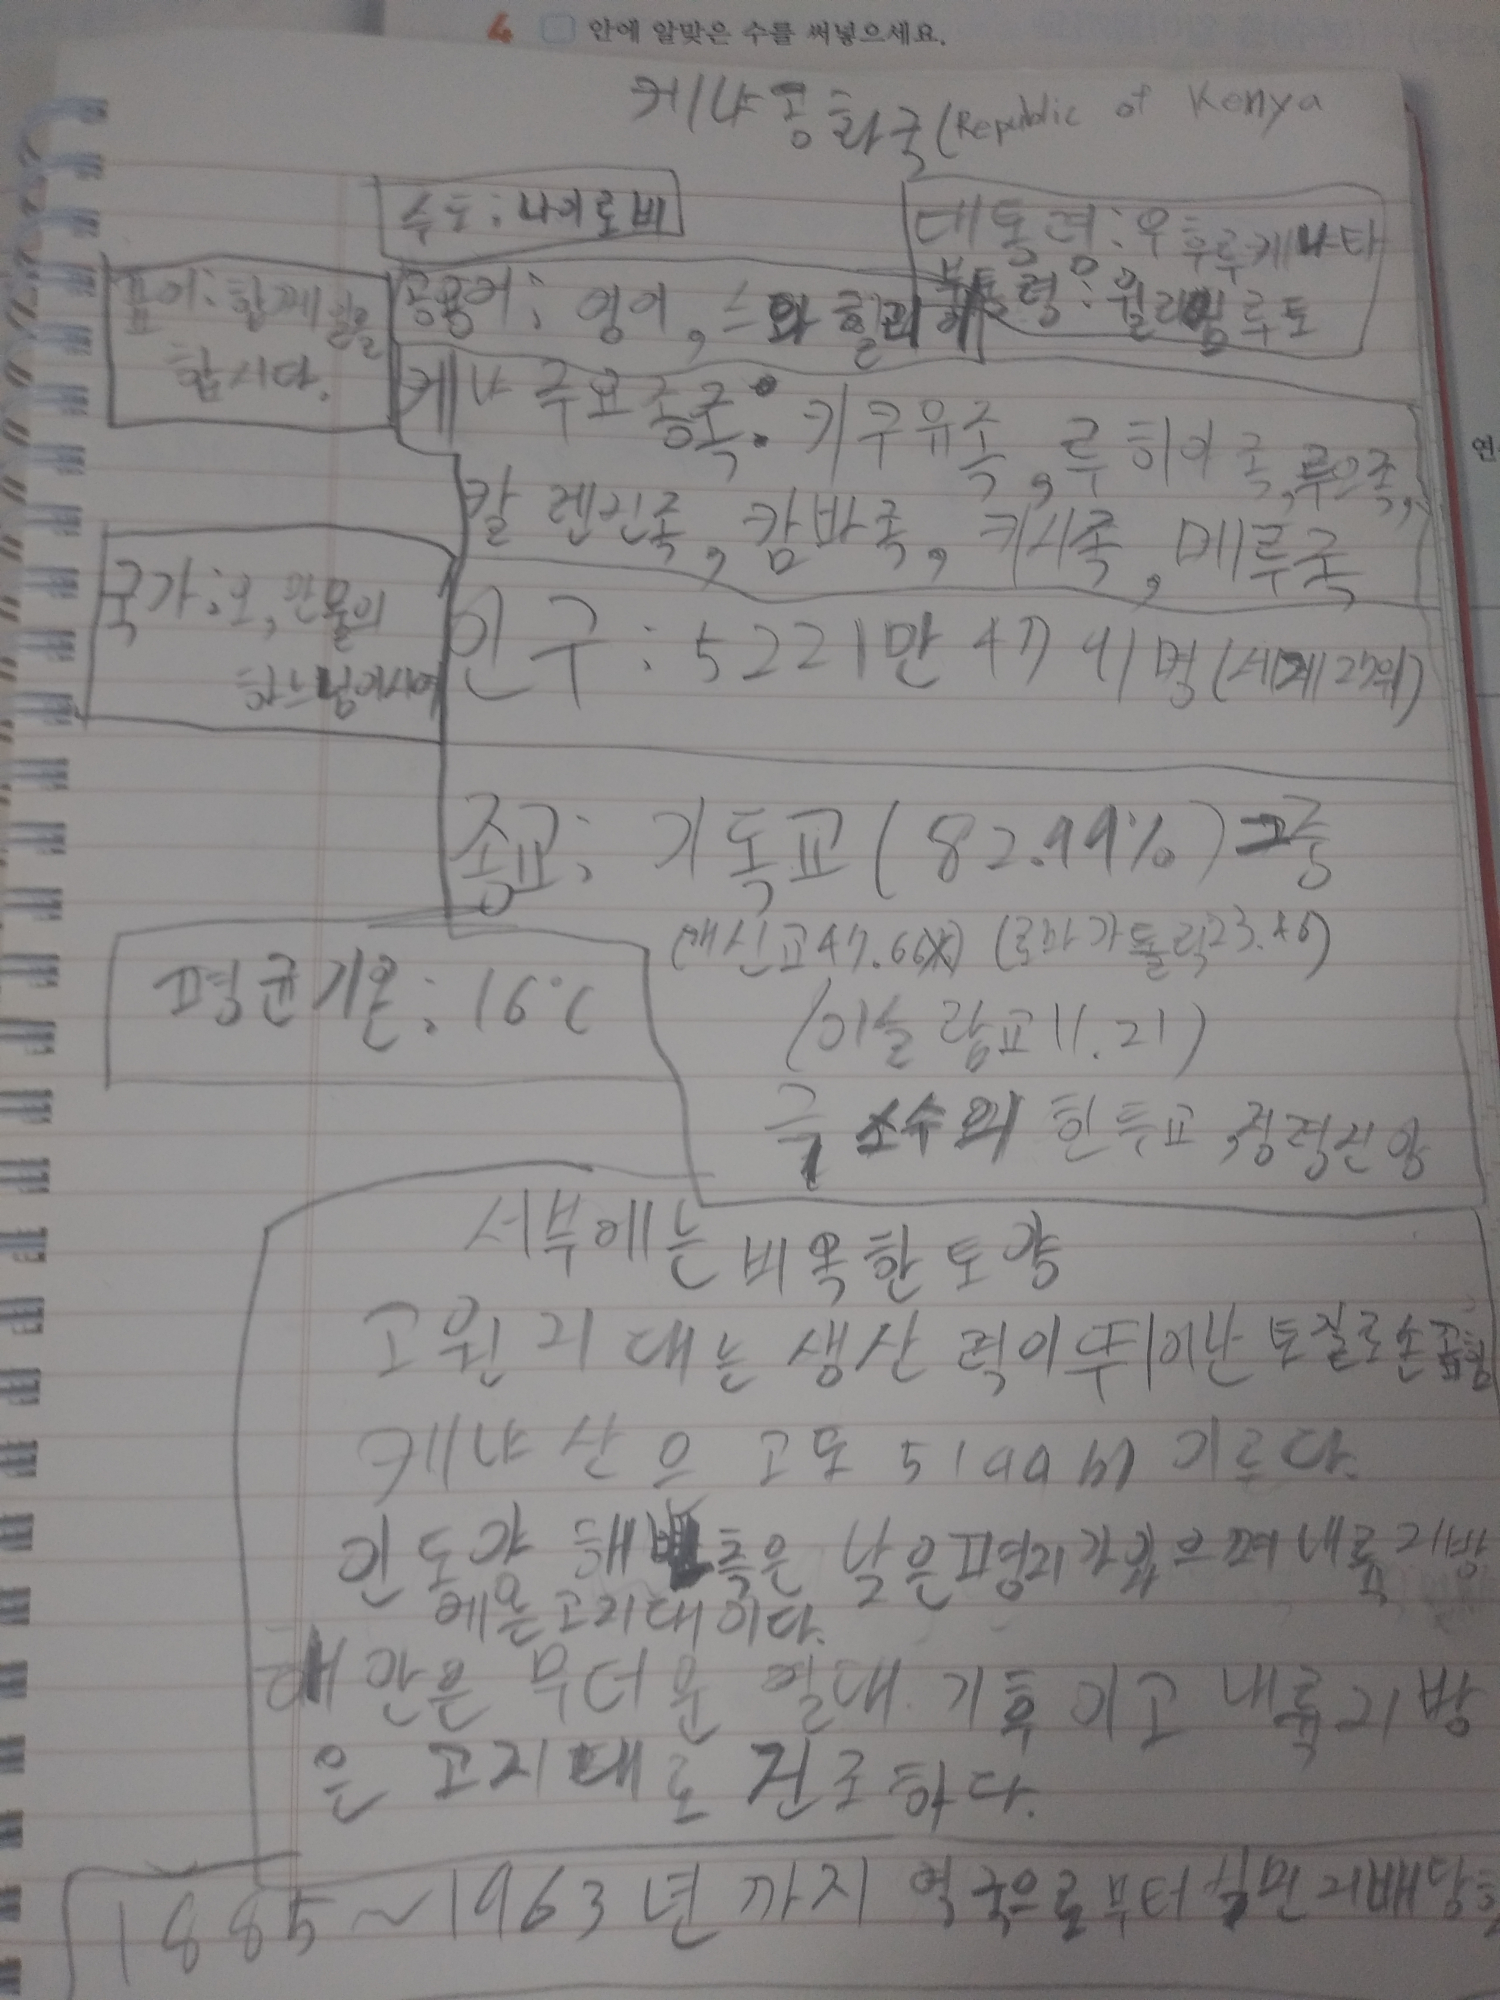 4 안에 알맞은 수를 써넣으세요.
케냐공화국(Republic of Kenya
수도: 나이로비
대통령: 우후루케냐타
부통령: 윌리엄루토
표어: 함께 일을
합시다.
공용어: 영어, 스와힐리어
케냐 주요종족: 키쿠유족, 루히아족, 루오족,
칼렌진족, 캄바족, 키시족, 메루족
국가: 오, 만물의
하느님이시여
인구: 5221만 4791명(세계27위)
종교: 기독교(82.99%)→중
(개신교47.66%) (로마가톨릭23.46)
(이슬람교11.21)
평균기온: 16℃
극소수의 힌두교, 정령신앙
서부에는 비옥한 토양
고원지대는 생산력이 뛰어난 토질로 손꼽힘
케냐산은 고도 5199m 이르다.
인도양 해변측은 낮은평지가 있으며 내륙지방
에은 고지대이다.
해안은 무더운 열대 기후이고 내륙지방
은 고지대로 건조하다.
1885~1963년까지 영국으로부터 식민지배당함
연